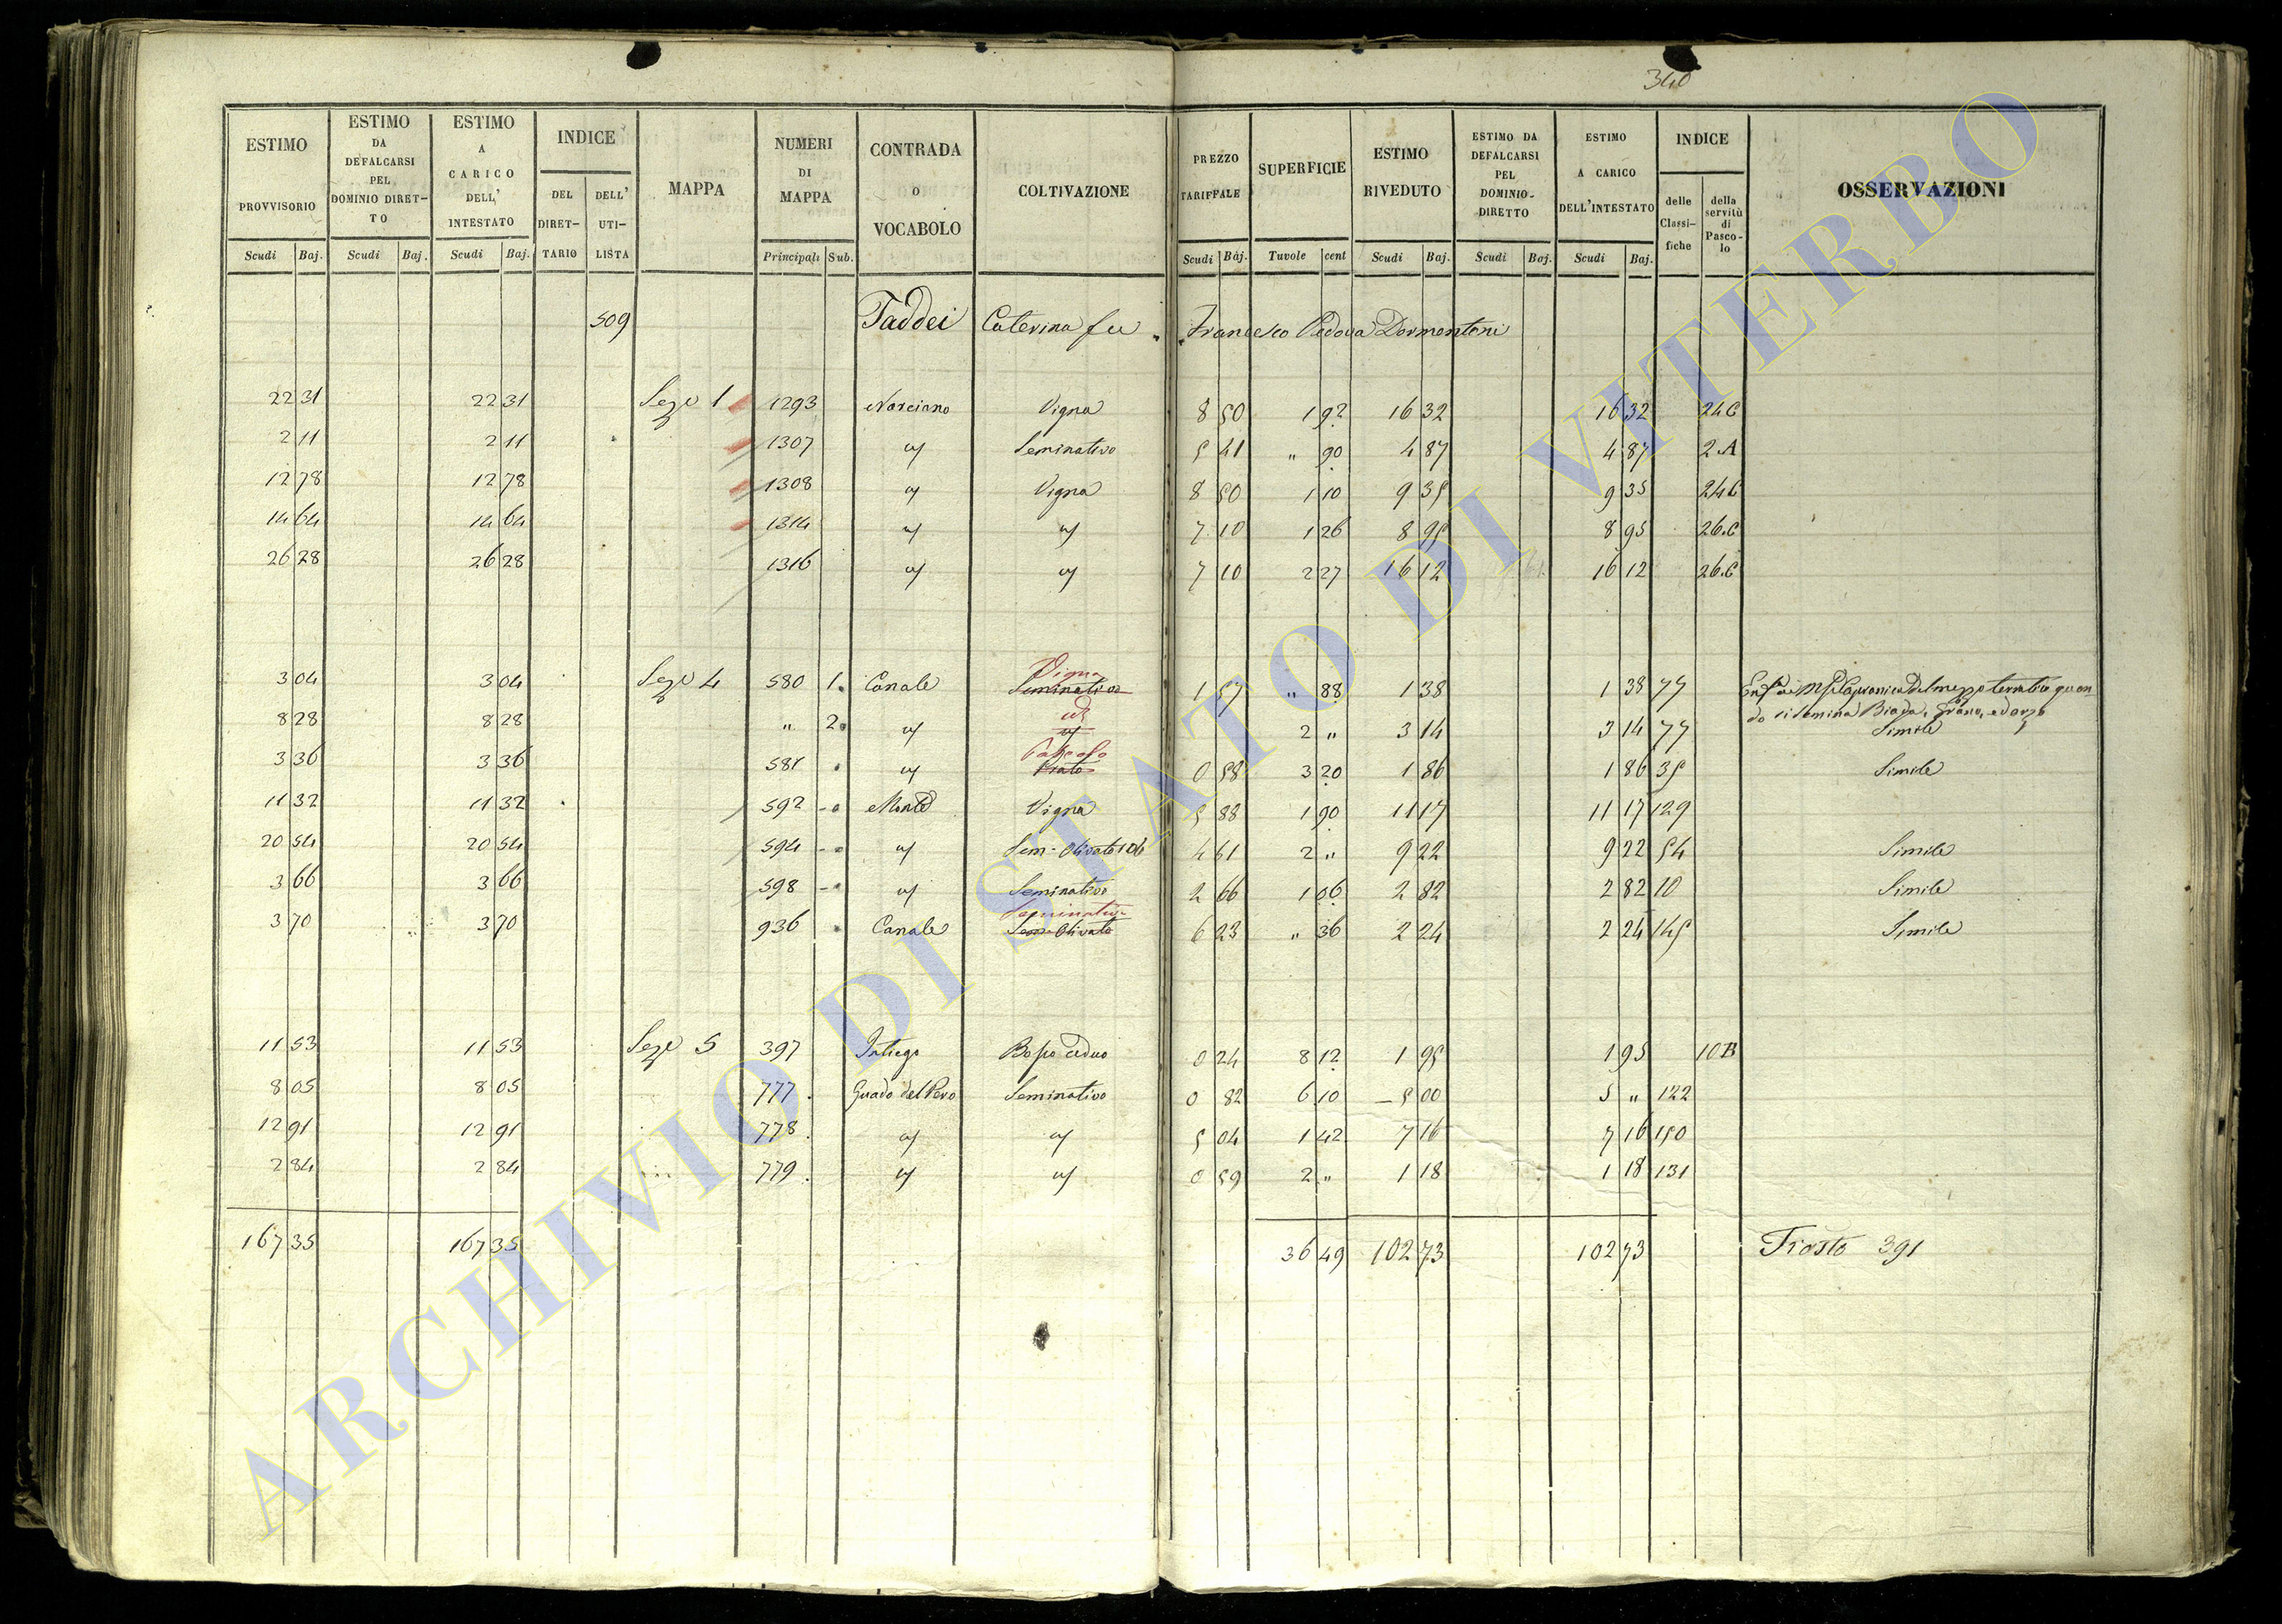 340
ESTIMO PROVVISORIO Scudi Baj. ESTIMO DA DEFALCARSI PEL DOMINIO DIRETTO Scudi Baj. ESTIMO A CARICO DELL' INTESTATO Scudi Baj. INDICE DEL DIRET-TARIO DELL' UTI-LISTA MAPPA NUMERI DI MAPPA Principali Sub. CONTRADA O VOCABOLO COLTIVAZIONE PREZZO TARIFFALE Scudi Baj. SUPERFICIE Tavole cent ESTIMO RIVEDUTO Scudi Baj. ESTIMO DA DEFALCARSI PEL DOMINIO-DIRETTO Scudi Baj. ESTIMO A CARICO DELL'INTESTATO Scudi Baj. INDICE delle Classi-fiche della servitù di Pasco-lo OSSERVAZIONI
509 Taddei Caterina fu Francesco Vedova Dormentoni
22 31 22 31 Seze 1 1293 Narciano Vigna 8 50 1 92 16 32 16 32 24 C
2 11 2 11 1307 " Seminativo 5 41 " 90 4 87 4 87 2 A
12 78 12 78 1308 " Vigna 8 50 1 10 9 35 9 35 24 C
14 64 14 64 1314 " " 7 10 1 26 8 95 8 95 26.C
26 28 26 28 1316 " " 7 10 2 27 16 12 16 12 26.C
Vigna
3 04 3 04 Seze 4 580 1. Canale Seminativo 1 57 " 88 1 38 1 38 77
do si semina Biada, Grano, ed orzo
id
8 28 8 28 " 2. " " 2 " 3 14 3 14 77 Simile
Pascolo
3 36 3 36 581 " Prato 0 58 3 20 1 86 1 86 35 Simile
11 32 11 32 592 Monte Vigna 5 88 1 90 11 17 11 17 129
20 54 20 54 594 " Sem. Olivato 4 61 2 " 9 22 9 22 54 Simile
3 66 3 66 598 " Seminativo 2 66 1 06 2 82 2 82 10 Simile
Seminativo
3 70 3 70 936 Canale Sem Olivato 6 23 " 36 2 24 2 24 145 Simile
11 53 11 53 Seze 5 397 Bosco ceduo 0 24 8 12 1 95 1 95 10 B
8 05 8 05 777 Guado del Pero Seminativo 0 82 6 10 5 00 5 " 122
12 91 12 91 778 " " 5 04 1 42 7 16 7 16 150
2 84 2 84 779 " " 0 59 2 " 1 18 1 18 131
167 35 167 35 36 49 102 73 102 73 Trasto 391
ARCHIVIO DI STATO DI VITERBO